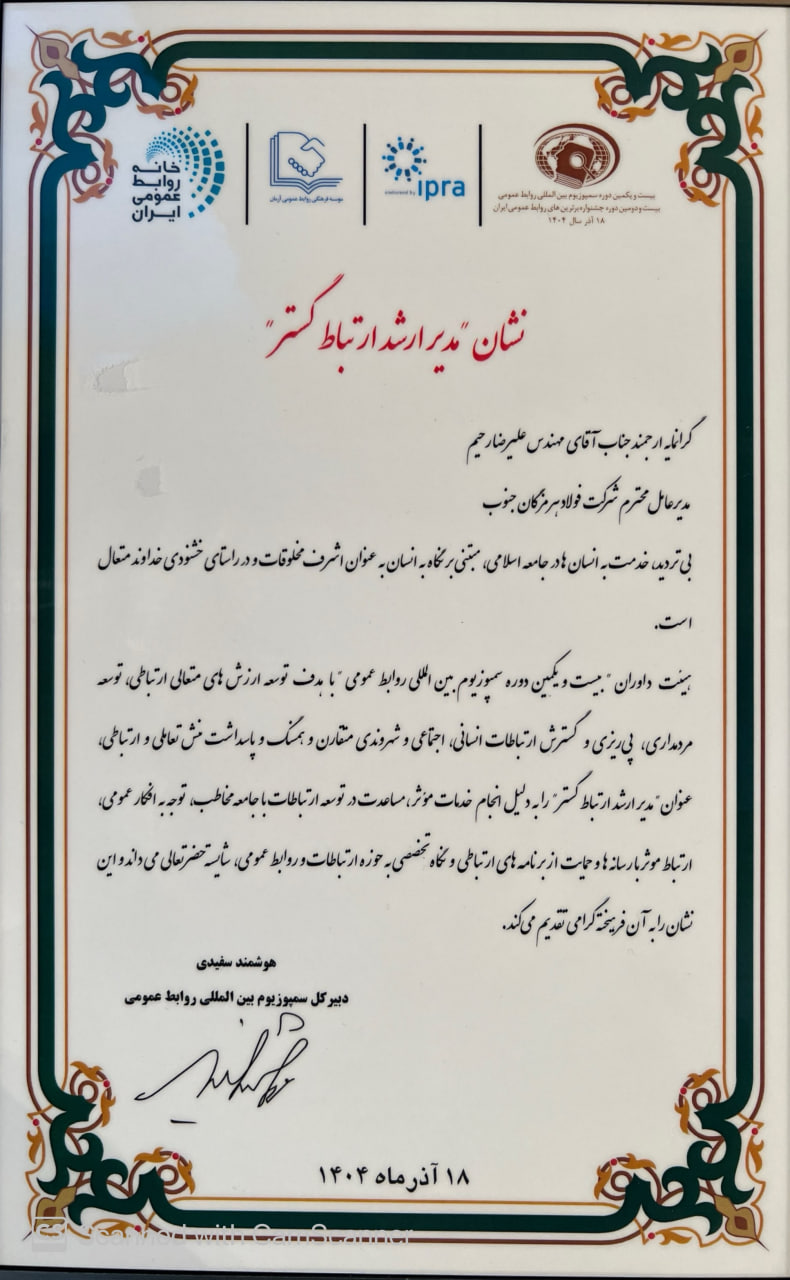 خانه
روابط
عمومی
ایران
موسسه فرهنگی روابط عمومی آرمان
endorsed by ipra
بیست و یکمین دوره سمپوزیوم بین المللی روابط عمومی
بیست و دومین دوره جشنواره برترین های روابط عمومی ایران
۱۸ آذر سال ۱۴۰۴
نشان "مدیر ارشد ارتباط گستر"
گرانمایه ارجمند جناب آقای مهندس علیرضا رحیم
مدیرعامل محترم شرکت فولاد هرمزگان جنوب
بی تردید، خدمت به انسان ها در جامعه اسلامی، مبتنی بر نگاه به انسان به عنوان اشرف مخلوقات و در راستای خشنودی خداوند متعال
است.
هیئت داوران "بیست و یکمین دوره سمپوزیوم بین المللی روابط عمومی" با هدف توسعه ارزش های متعالی ارتباطی، توسعه
مردمداری، پی‌ریزی و گسترش ارتباطات انسانی، اجتماعی و شهروندی متقارن و همسنگ و پاسداشت منش تعاملی و ارتباطی،
عنوان "مدیر ارشد ارتباط گستر" را به دلیل انجام خدمات مؤثر، مساعدت در توسعه ارتباطات با جامعه مخاطب، توجه به افکار عمومی،
ارتباط موثر با رسانه ها و حمایت از برنامه های ارتباطی و نگاه تخصصی به حوزه ارتباطات و روابط عمومی، شایسته حضرتعالی می داند و این
نشان را به آن فرهیخته گرامی تقدیم می‌کند.
هوشمند سفیدی
دبیرکل سمپوزیوم بین المللی روابط عمومی
۱۸ آذرماه ۱۴۰۴
CS Scanned with CamScanner